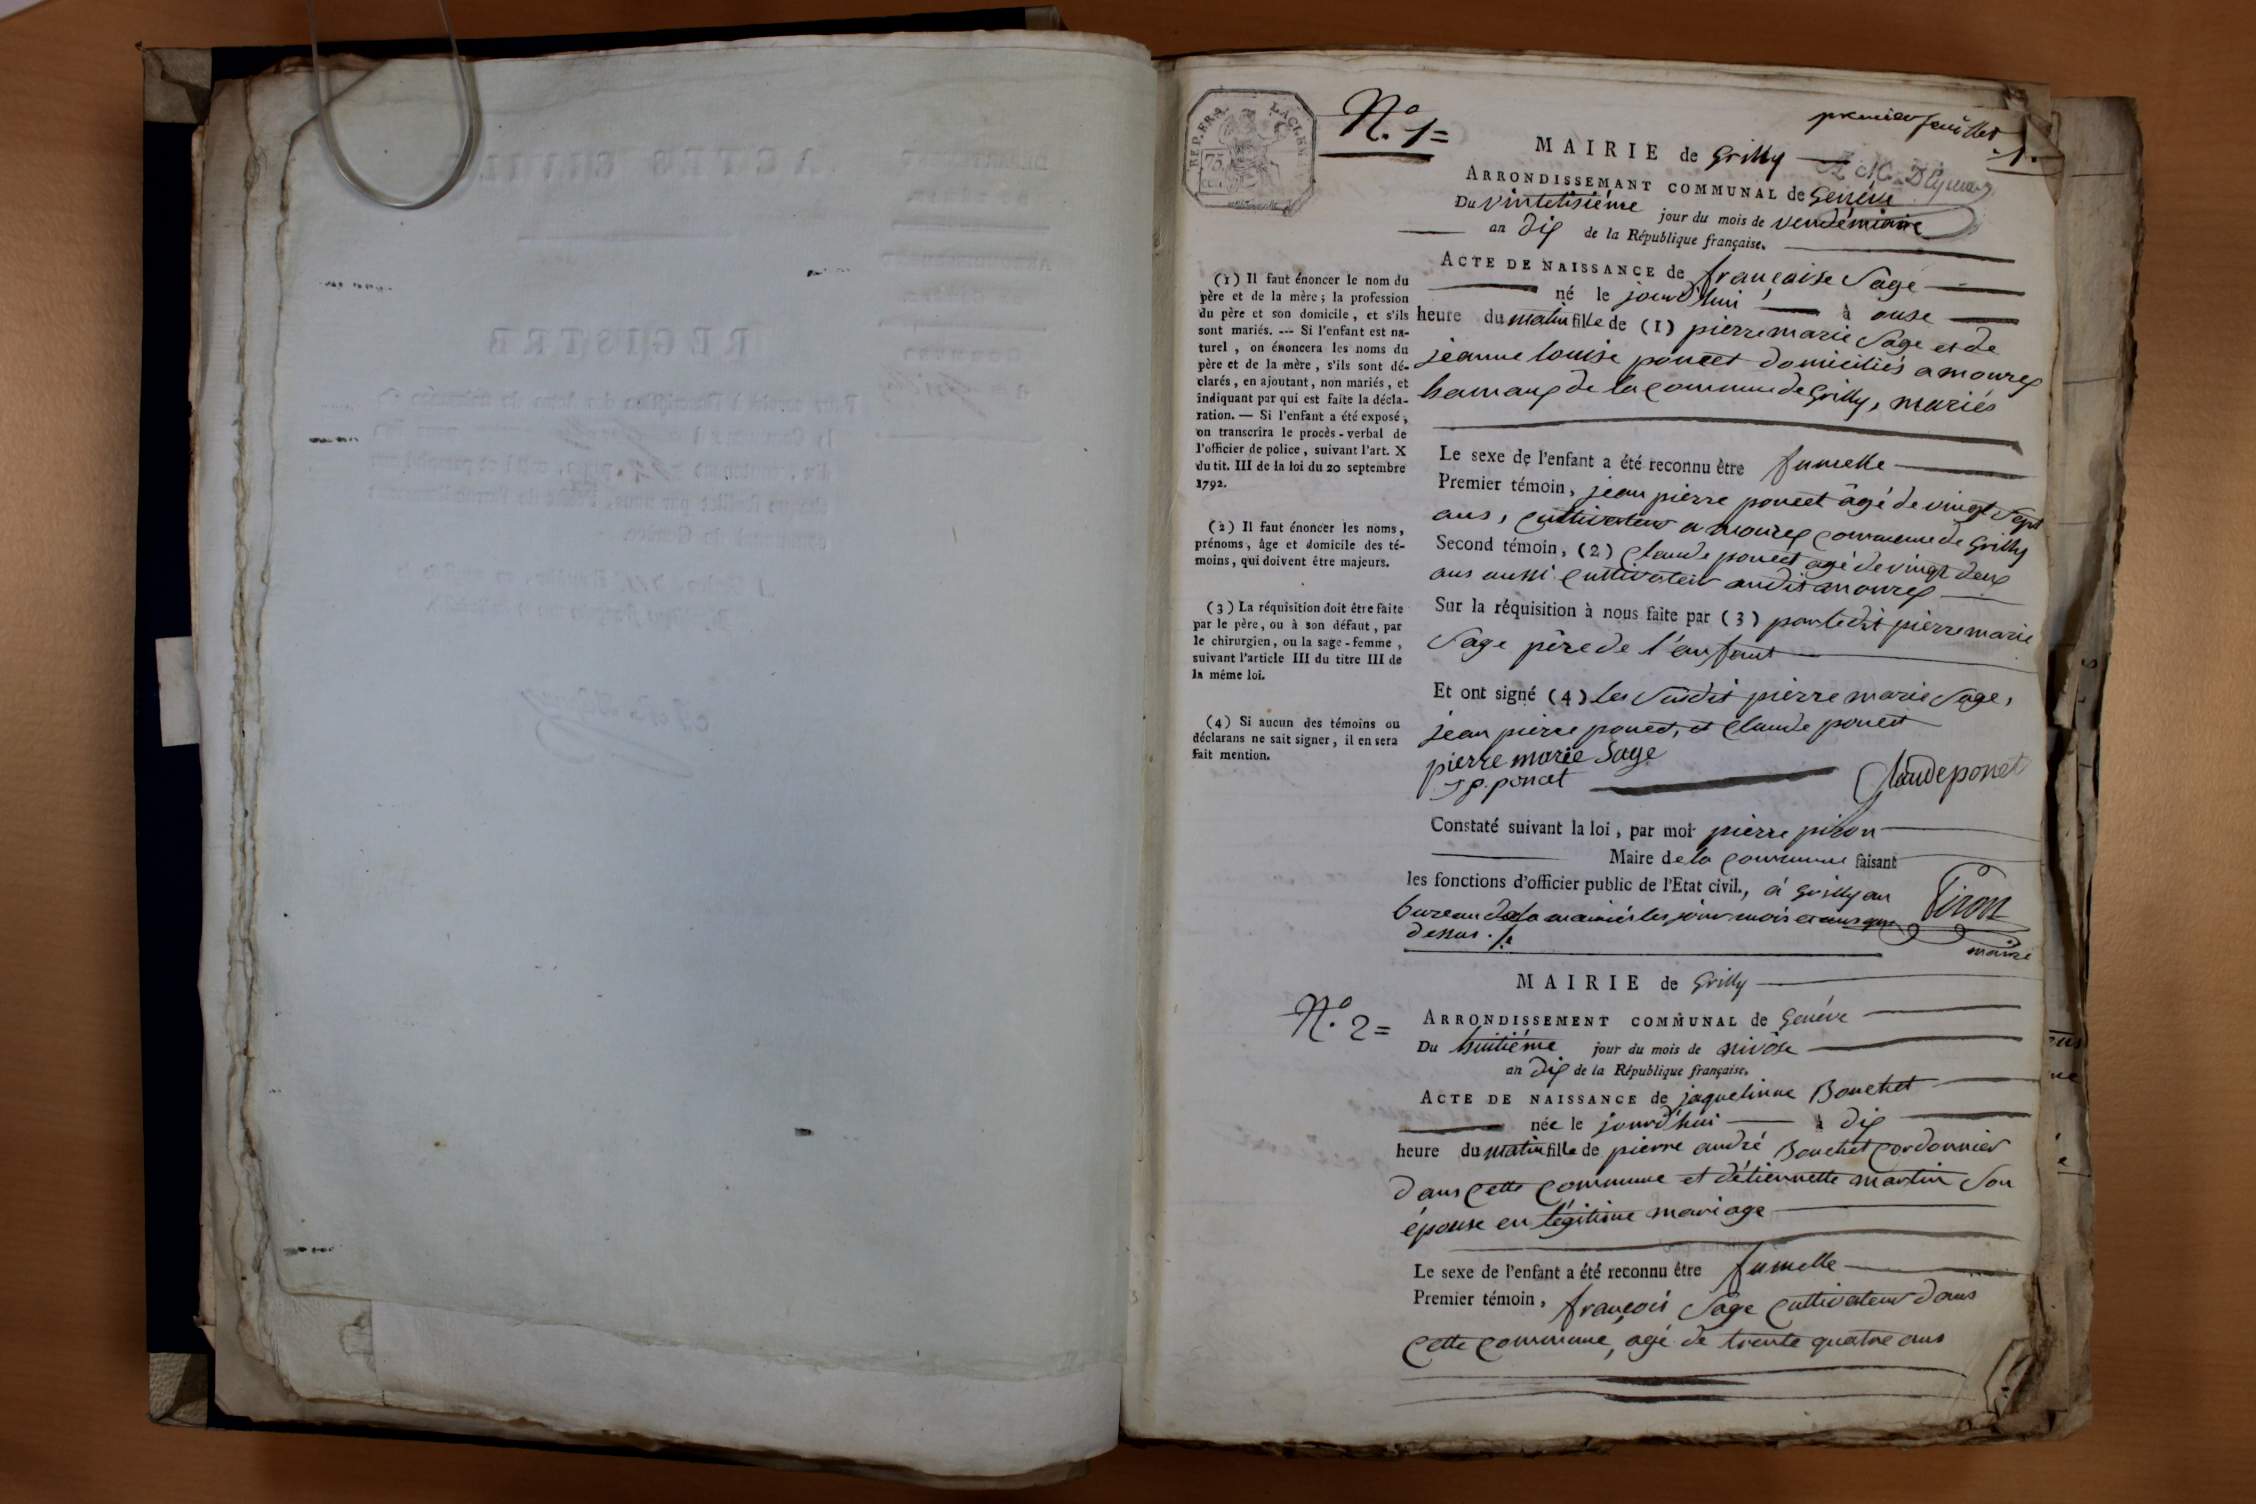 premier feuillet
.1.
REP. FRA.
75
CEN.
N.º 1 =
MAIRIE de Grilly
ARRONDISSEMANT COMMUNAL de Genéve
Du vintetisiéme jour du mois de vendémiaire
an dix de la République française.
ACTE DE NAISSANCE de françoise Sage
né le jourd'hui à onse
heure du matin fille de (1) pierre marie Sage et de
jeanne louise poncet domiciliés a mourex
hamaux de la commune de Grilly, mariés
Le sexe de l'enfant a été reconnu être fumelle
Premier témoin, jean pierre poncet âgé de vingt sept
ans, cultivateur a mourex commune de Grilly
Second témoin, (2) Claude poncet agé de vingt deux
ans aussi cultivateur audit mourex
Sur la réquisition à nous faite par (3) par ledit pierre marie
Sage père de l'enfant
Et ont signé (4) les Susdit pierre marie Sage,
jean pierre poncet, et Claude poncet
pierre marie Sage
J p. poncet
Claude ponet
Constaté suivant la loi, par moi pierre piron
Maire de la commune faisant
les fonctions d'officier public de l'Etat civil., à Grilly au
bureau de la mairie les jour mois et ans que
dessus ./.
Piron
maire
(1) Il faut énoncer le nom du
père et de la mère; la profession
du père et son domicile, et s'ils
sont mariés. --- Si l'enfant est na-
turel, on énoncera les noms du
père et de la mère, s'ils sont dé-
clarés, en ajoutant, non mariés, et
indiquant par qui est faite la décla-
ration. — Si l'enfant a été exposé,
on transcrira le procès-verbal de
l'officier de police, suivant l'art. X
du tit. III de la loi du 20 septembre
1792.
(2) Il faut énoncer les noms,
prénoms, âge et domicile des té-
moins, qui doivent être majeurs.
(3) La réquisition doit être faite
par le père, ou à son défaut, par
le chirurgien, ou la sage-femme,
suivant l'article III du titre III de
la même loi.
(4) Si aucun des témoins ou
déclarans ne sait signer, il en sera
fait mention.
N.º 2 =
MAIRIE de Grilly
ARRONDISSEMENT COMMUNAL de Genéve
Du huitiéme jour du mois de nivôse
an dix de la République française.
ACTE DE NAISSANCE de jaquelinne Bouchet
née le jourd'hui à dix
heure du matin fille de pierre andré Bouchet cordonnier
dans cette commune et d'étiennette martin Son
épouse en légitime mariage
Le sexe de l'enfant a été reconnu être fumelle
Premier témoin, françois Sage cultivateur dans
cette commune, agé de trente quatre ans